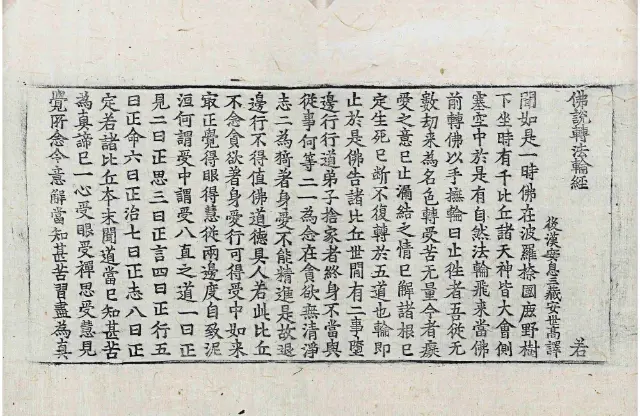 佛說轉法輪經
後漢安息三藏安世高譯 若
聞如是一時佛在波羅㮈國鹿野樹
下坐時有千比丘諸天神皆大會側
塞空中於是有自然法輪飛來當佛
前轉佛以手撫輪曰止往者吾從无
數劫來為名色轉受苦无量今者癡
愛之意已止漏結之情已解諸根已
定生死已斷不復轉於五道也輪即
止於是佛告諸比丘世間有二事墮
邊行行道弟子捨家者終身不當與
從事何等二一為念在貪欲無清淨
志二為猗著身愛不能精進是故退
邊行不得值佛道德具人若此比丘
不念貪欲著身愛行可得受中如来
㝡正覺得眼得慧從兩邊度自致泥
洹何謂受中謂受八直之道一曰正
見二曰正思三曰正言四曰正行五
曰正命六曰正治七曰正志八曰正
定若諸比丘本末聞道當已知甚苦
為真諦已一心受眼受禪思受慧見
覺所念令意解當知甚苦習盡為真